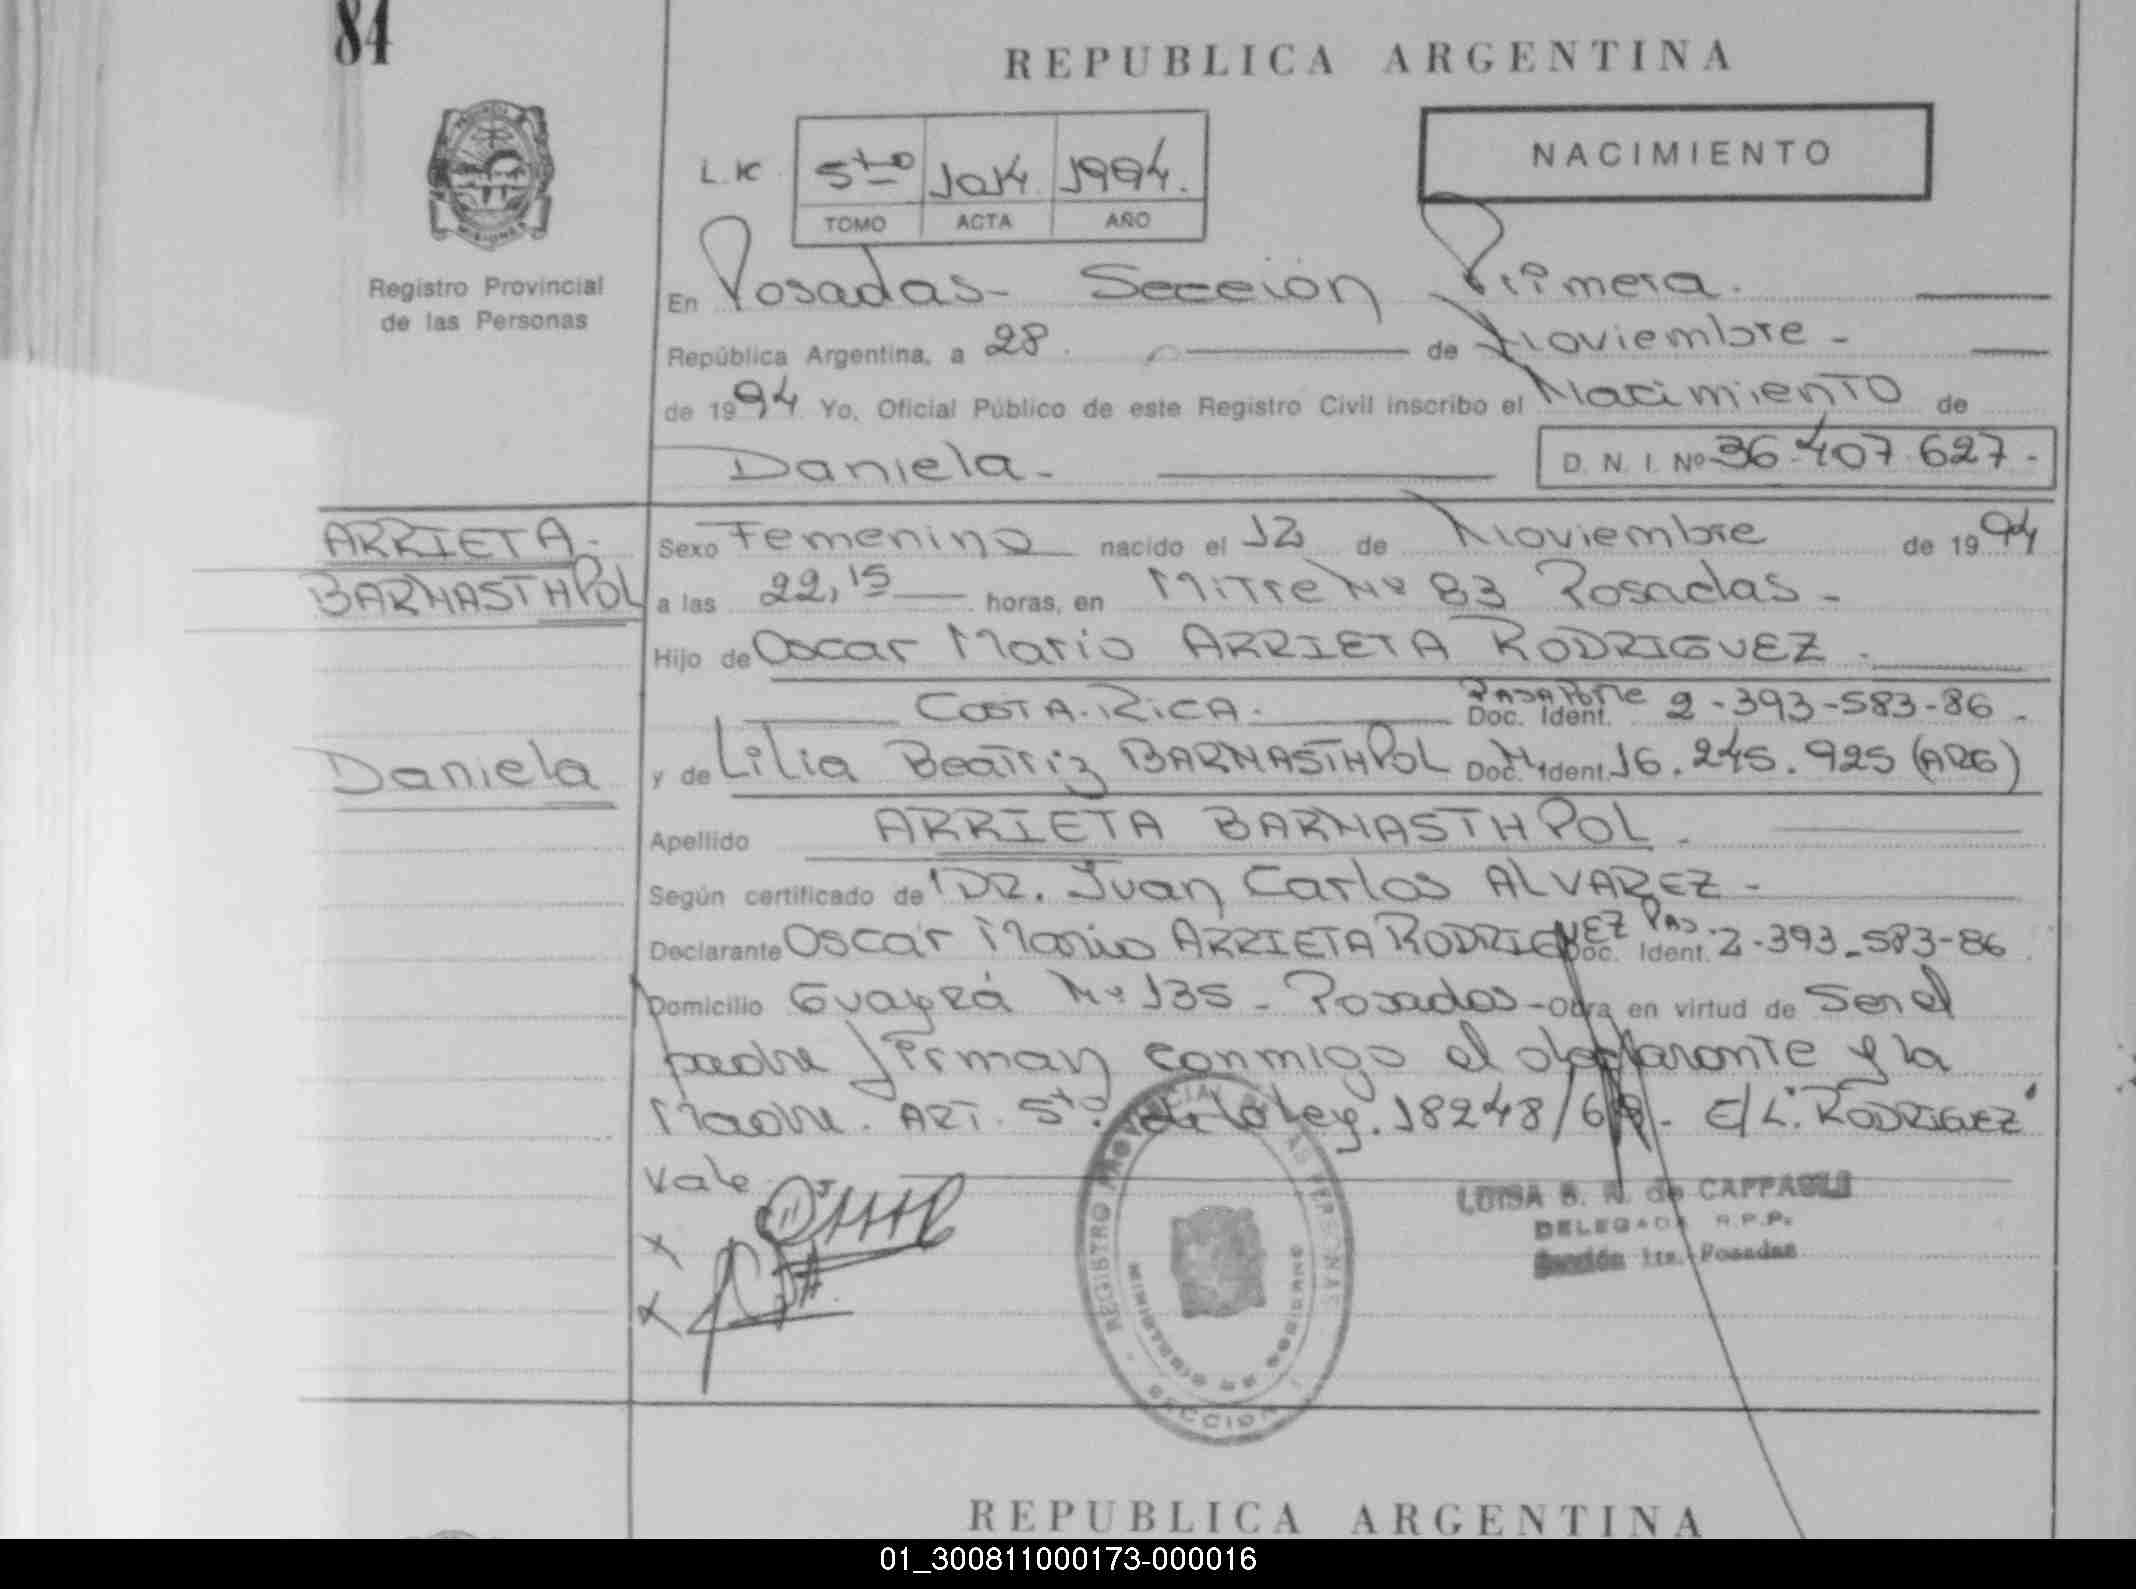 84
REPUBLICA ARGENTINA
NACIMIENTO
L.K 5to 1014. 1994.
TOMO ACTA AÑO
Registro Provincial
de las Personas
En Posadas - Sección Primera.
República Argentina, a 28. de Noviembre -
de 1994 Yo, Oficial Público de este Registro Civil inscribo el Nacimiento de
Daniela - D. N. I. Nº 36.407.627.-
ARRIETA-
BARNASTHPOL
Daniela
Sexo Femenino nacido el 12 de Noviembre de 1994
a las 22,15 horas, en Mitre Nº 83 Posadas -
Hijo de Oscar Mario ARRIETA RODRIGUEZ.
COSTA-RICA. PASAPORTE Doc. Ident. 2-393-583-86.
y de Lilia Beatriz BARNASTHPOL Doc. Ident. 16.245.925 (ARG)
Apellido ARRIETA BARNASTHPOL.
Según certificado de DR. Juan Carlos ALVAREZ -
Declarante Oscar Mario ARRIETA RODRIGUEZ PAS. Doc. Ident. 2-393-583-86.
Domicilio Guayrá Nº 135 - Posadas - Obra en virtud de Ser el
padre firman conmigo el declarante y la
Madre. ART. 5to. de la Ley. 18248/69. E/L. "RODRIGUEZ"
Vale
LUISA B. N. de CAPPASULE
DELEGADA R.P.P.
Sección 1ra. Posadas
REGISTRO PROVINCIAL DE LAS PERSONAS
MINISTERIO DE GOBIERNO
SECCION
REPUBLICA ARGENTINA
01_300811000173-000016